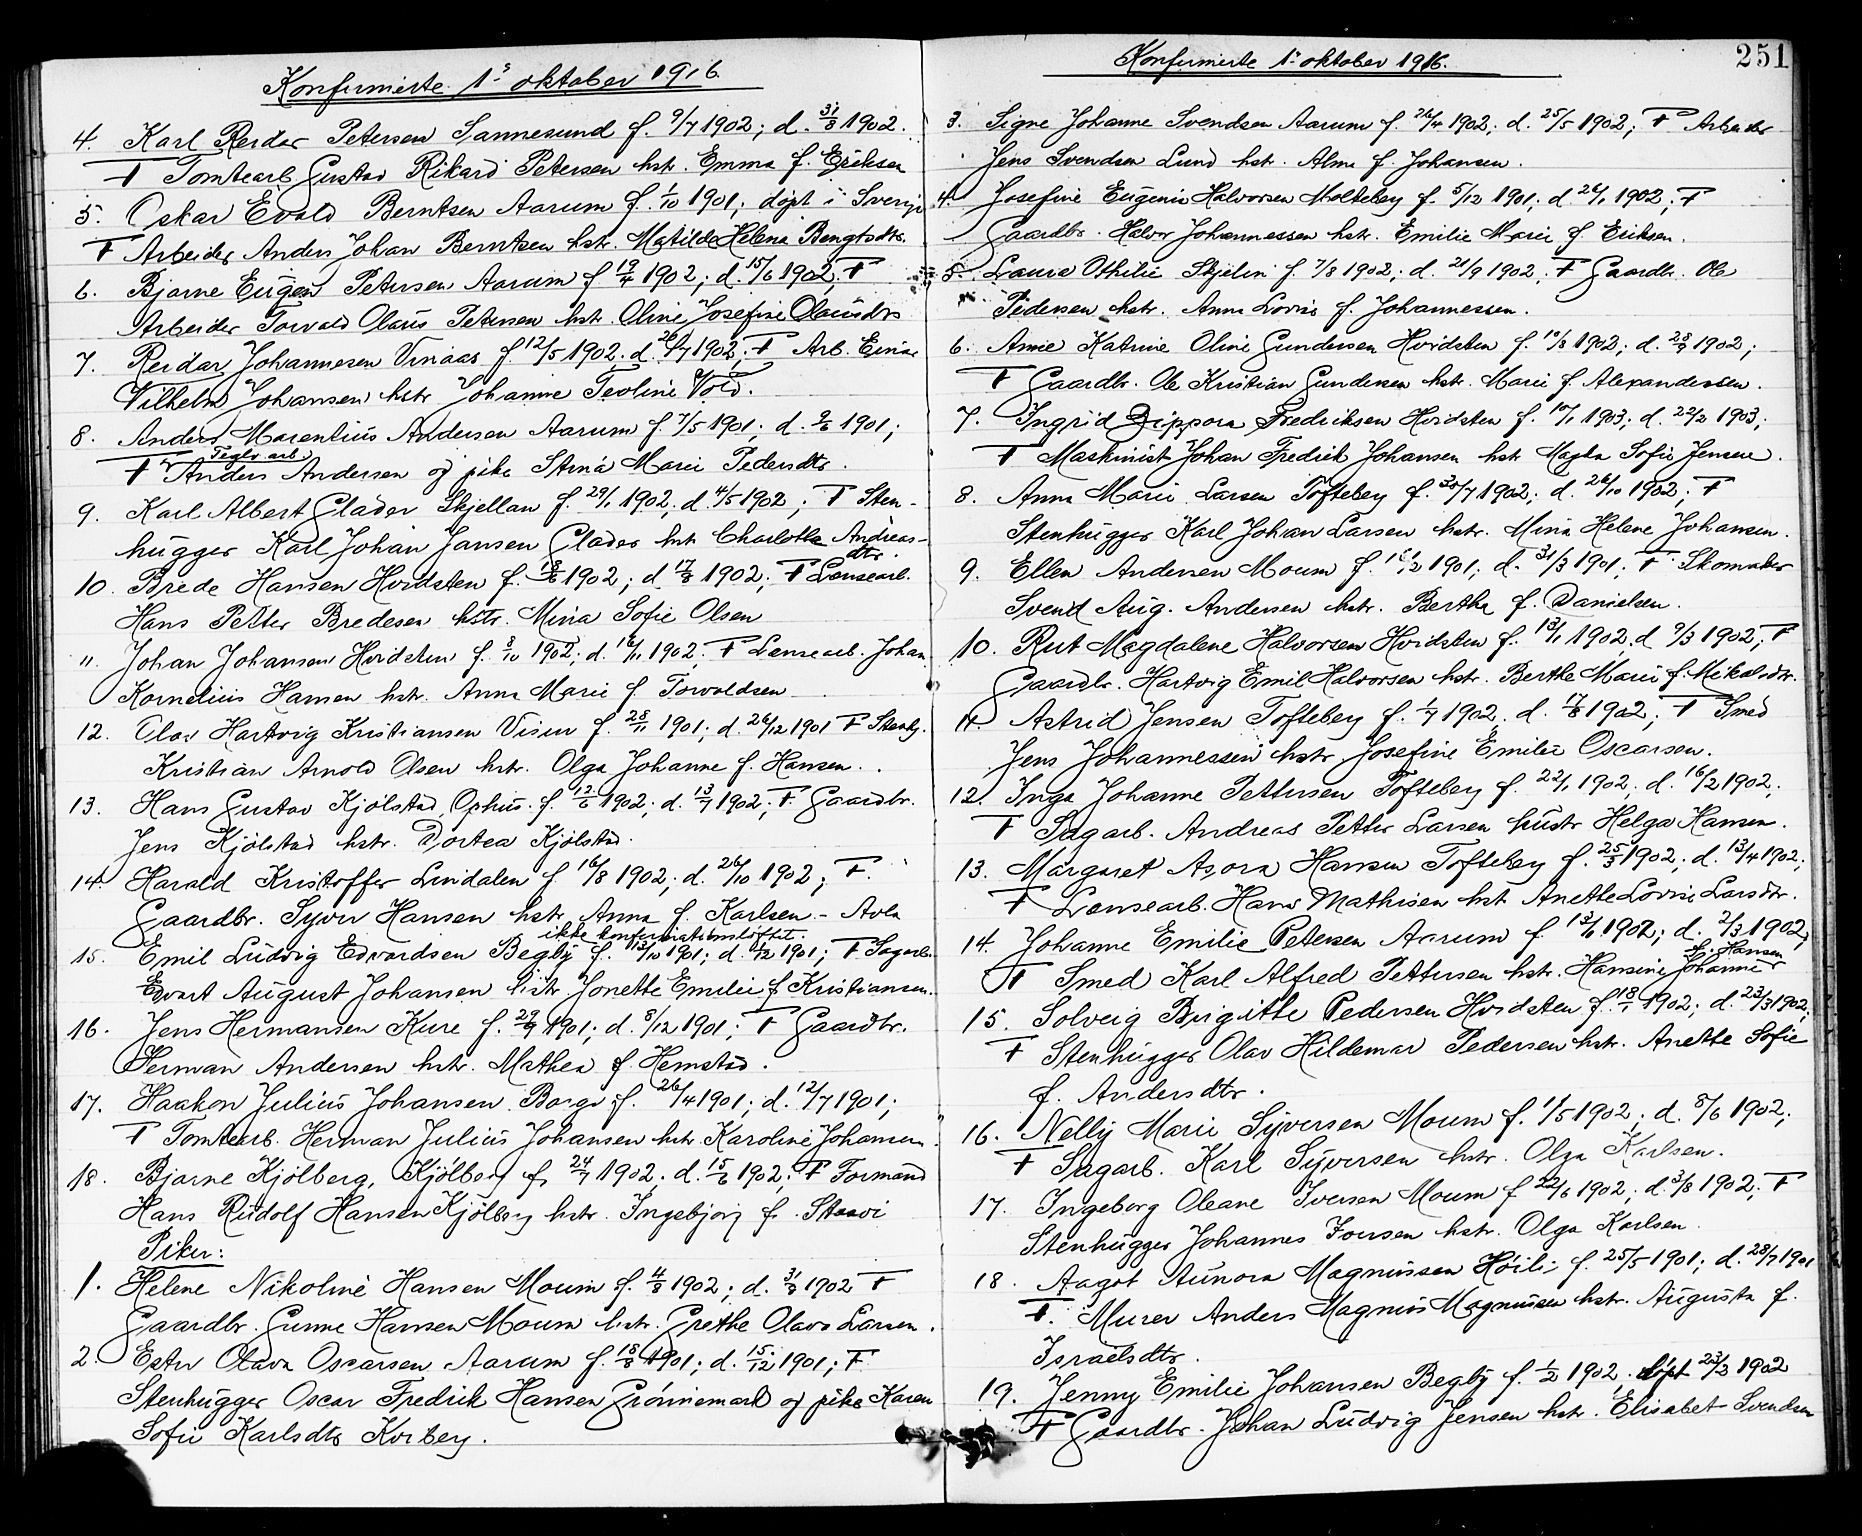 Konfirmerte 1ste oktober 1916.
4. Karl Reidar Petersen Sannesund f. 9/7 1902; d. 31/8 1902.
F Tomtearb. Gustav Rikard Petersen hstr. Emma f. Eriksen
5. Oskar Evald Berntsen Aarum f. 1/10 1901; døpt i Sverige
F Arbeider Anders Johan Berntsen hstr. Matilde Helena Bengtsdtr.
6. Bjarne Eugen Petersen Aarum f 19/4 1902; d. 15/6 1902; F
Arbeider Torvald Olaus Petersen hstr. Oline Josefine Olausdtr
7. Reidar Johannesen Vinaas f 12/5 1902. d. 20/7 1902; F Arb. Einar
Vilhelm Johansen hstr Johanne Teoline Vold.
8. Anders Marentius Andersen Aarum f 7/5 1901; d. 9/6 1901;
F Teglv. arb. Anders Andersen og pike Stina Marie Pedersdtr.
9. Karl Albert Glader Skjellan f. 29/1 1902, d. 4/5 1902; F Sten-
hugger Karl Johan Jansen Glader hstr Charlotte Andreas-
dtr.
10. Brede Hansen Hvidsten f. 18/6 1902; d 17/8 1902; F Lensearb.
Hans Petter Bredesen hstr. Mina Sofie Olsen
11. Johan Johansen Hvidsten f. 8/10 1902; d. 16/11 1902; F Lensearb. Johan
Kornelius Hansen hstr. Anna Marie f. Torvaldsen
12. Olav Hartvig Kristiansen Visur f. 28/11 1901; d. 26/12 1901 F Stenh.
Kristian Arnold Olsen hstr. Olga Johanne f. Hansen.
13. Hans Gustav Kjølstad, Ophus f. 12/6 1902; d. 13/7 1902; F. Gaardbr.
Jens Kjølstad hstr. Dortea Kjølstad.
14. Harald Kristoffer Lindalen f 16/8 1902; d. 26/10 1902; F.
Gaardbr. Syver Hansen hstr. Anna f. Karlsen. - Avla
ikke konfirmationsløftet.
15. Emil Ludvig Edvardsen Begby f. 13/10 1901; d. 1/12 1901; F Sagarb.
Edvart August Johansen hstr Jonette Emilie f Kristiansen.
16. Jens Hermansen Kure f. 29/9 1901; d. 8/12 1901; F Gaardbr.
Herman Andersen hstr. Mathea f Hemstad.
17. Haakon Julius Johansen Borge f. 26/4 1901; d. 12/7 1901;
F Tomtearb. Herman Julius Johansen hstr. Karoline Johansen
18. Bjarne Kjølberg, Kjølberg f. 24/7 1902; d. 15/6 1902; F Formand
Hans Rudolf Hansen Kjølberg hstr. Ingebjorg f. Staavi
Piker:
1. Helene Nikoline Hansen Moum f. 4/8 1902; d. 31/8 1902 F
Gaardbr. Gunne Hansen Moum hstr. Grethe Olava Larsen.
2. Ester Olava Oscarsen Aarum f. 18/8 1901; d. 15/12 1901; F.
Stenhugger Oscar Fredrik Hansen Grønnemark og pike Karen
Sofie Karlsdtr Korberg.
Konfirmerte 1ste oktober 1916.
251
3. Signe Johanne Svendsen Aarum f. 26/4 1902; d. 25/5 1902; F Arbeider
Jens Svendsen Lund hstr. Alma f. Johansen.
4. Josefine Eugenie Halvorsen Molteberg f. 5/12 1901; d 26/1 1902; F
Gaardbr. Halvor Johannessen hstr. Emilie Marie f. Eriksen.
5. Laura Othilie Skjelin f. 7/8 1902; d. 21/9 1902; F Gaardbr. Ole
Pedersen hstr. Anna Lovise f. Johannessen.
6. Anne Katrine Oline Gundersen Hvidsten f. 10/8 1902; d. 28/9 1902;
F Gaardbr. Ole Kristian Gundersen hstr. Marie f. Alexandersen.
7. Ingrid Zippora Fredriksen Hvidsten f. 10/1 1903; d. 22/2 1903;
F Maskinist Johan Fredrik Johansen hstr Magda Sofie Jensen.
8. Anna Marie Larsen Tofteberg f. 30/7 1902; d. 26/10 1902; F
Stenhugger Karl Johan Larsen hstr. Mina Helene Johansen.
9. Ellen Andersen Moum f. 1901; d. 31/3 1901; F Skomaker
Svend Aug. Andersen hstr. Bertha f. Danielsen.
10. Rut Magdalene Halvorsen Hvidsten f. 13/1 1902; d 9/3 1902; F
Gaardbr. Hartvig Emil Halvorsen hstr. Berthe Marie f. Mikalsdtr.
11. Astrid Jensen Tofteberg f. 1/7 1902. d. 17/8 1902; F Smed
Jens Johannessen hstr. Josefine Emilie Oscarsen.
12. Inga Johanne Pettersen Tofteberg f. 22/1 1902; d. 16/2 1902;
F Sagarb. Andreas Petter Larsen hustr Helga Hansen.
13. Margaret Azora Hansen Tofteberg f. 25/3 1902; d. 13/4 1902;
F Lensearb. Hans Mathisen hst Anette Lovise Larsdtr.
14. Johanne Emilie Petersen Aarum f. 13/1 1902; d. 2/3 1902;
F Smed Karl Alfred Pettersen hstr. Hansine Johanne f. Hansen
15. Solveig Birgitte Pedersen Hvidsten f. 18/1 1902; d. 23/3 1902;
F Stenhugger Olav Hildemar Pedersen hstr. Anette Sofie
f. Andersdtr.
16. Nelly Marie Syversen Moum f. 1/5 1902; d. 8/6 1902;
F Sagarb. Karl Syversen hstr. Olga Karlsen.
17. Ingeborg Oleane Iversen Moum f 22/6 1902; d. 3/8 1902; F
Stenhugger Johannes Iversen hstr. Olga Karlsen.
18. Aagot Aunora Magnussen Høili f. 25/5 1901; d. 28/7 1901
F. Murer Anders Magnus Magnussen hstr. Augusta f.
Israelsdtr.
19. Jenny Emilie Johansen Begby f. 1/2 1902. døpt 23/3 1902
F Gaardbr. Johan Ludvig Jensen hstr. Elisabet Svendsen